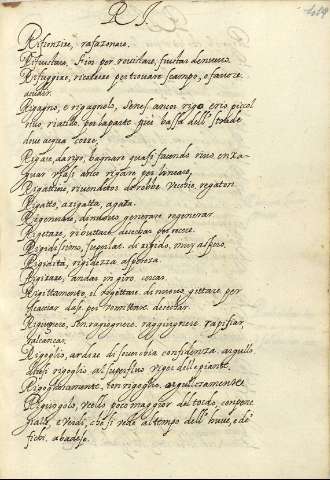 R I.
Rifonzire, rafazonare.
Rifrustare. Fin per revistare, frustar de nuevo.
Rifuggire, ricorrere per trovare scampo, e favore.
acudir.
Rigagno, e rigagnolo, Senes. ancor rigo erio piccol
rivo, riatillo. per la parte piu bassa dell' strade
dove acqua corre,
Rigare, da rigo, bagnare quasi facendo rivo. enxa-
guar usasi anco rigare per lineare,
Rigattiere, rivenditor di robbe vecchie, regaton.
Rigatto, a rigatto, a gata.
Rigenerare, di nuovo generare regenerar
Rigettare, ributtare desechar per recere.
Rigidissimo, superlat. di rigido, muy aspero.
Rigidità, rigidezza aspereza.
Rigirare, andar in giro cercar.
Rigittamento, il rigettare di nuovo gittare, per
scacciar disp. per vomittare desechar
Rigiugnere, Sen. ragiugnere, raggiugnere rapissar,
Rigoglio, ardire di soverchia confidenza, argullo,
dicesi rigoglio al superfluo vigor dell piante.
Rigogliosamente, con rigoglio, argullosamente
Rigogolo, ucello poco maggior del tordo, con penne
gialle, e verdi, che si vede al tempo dell' huve, e de
fichi, abadejo.